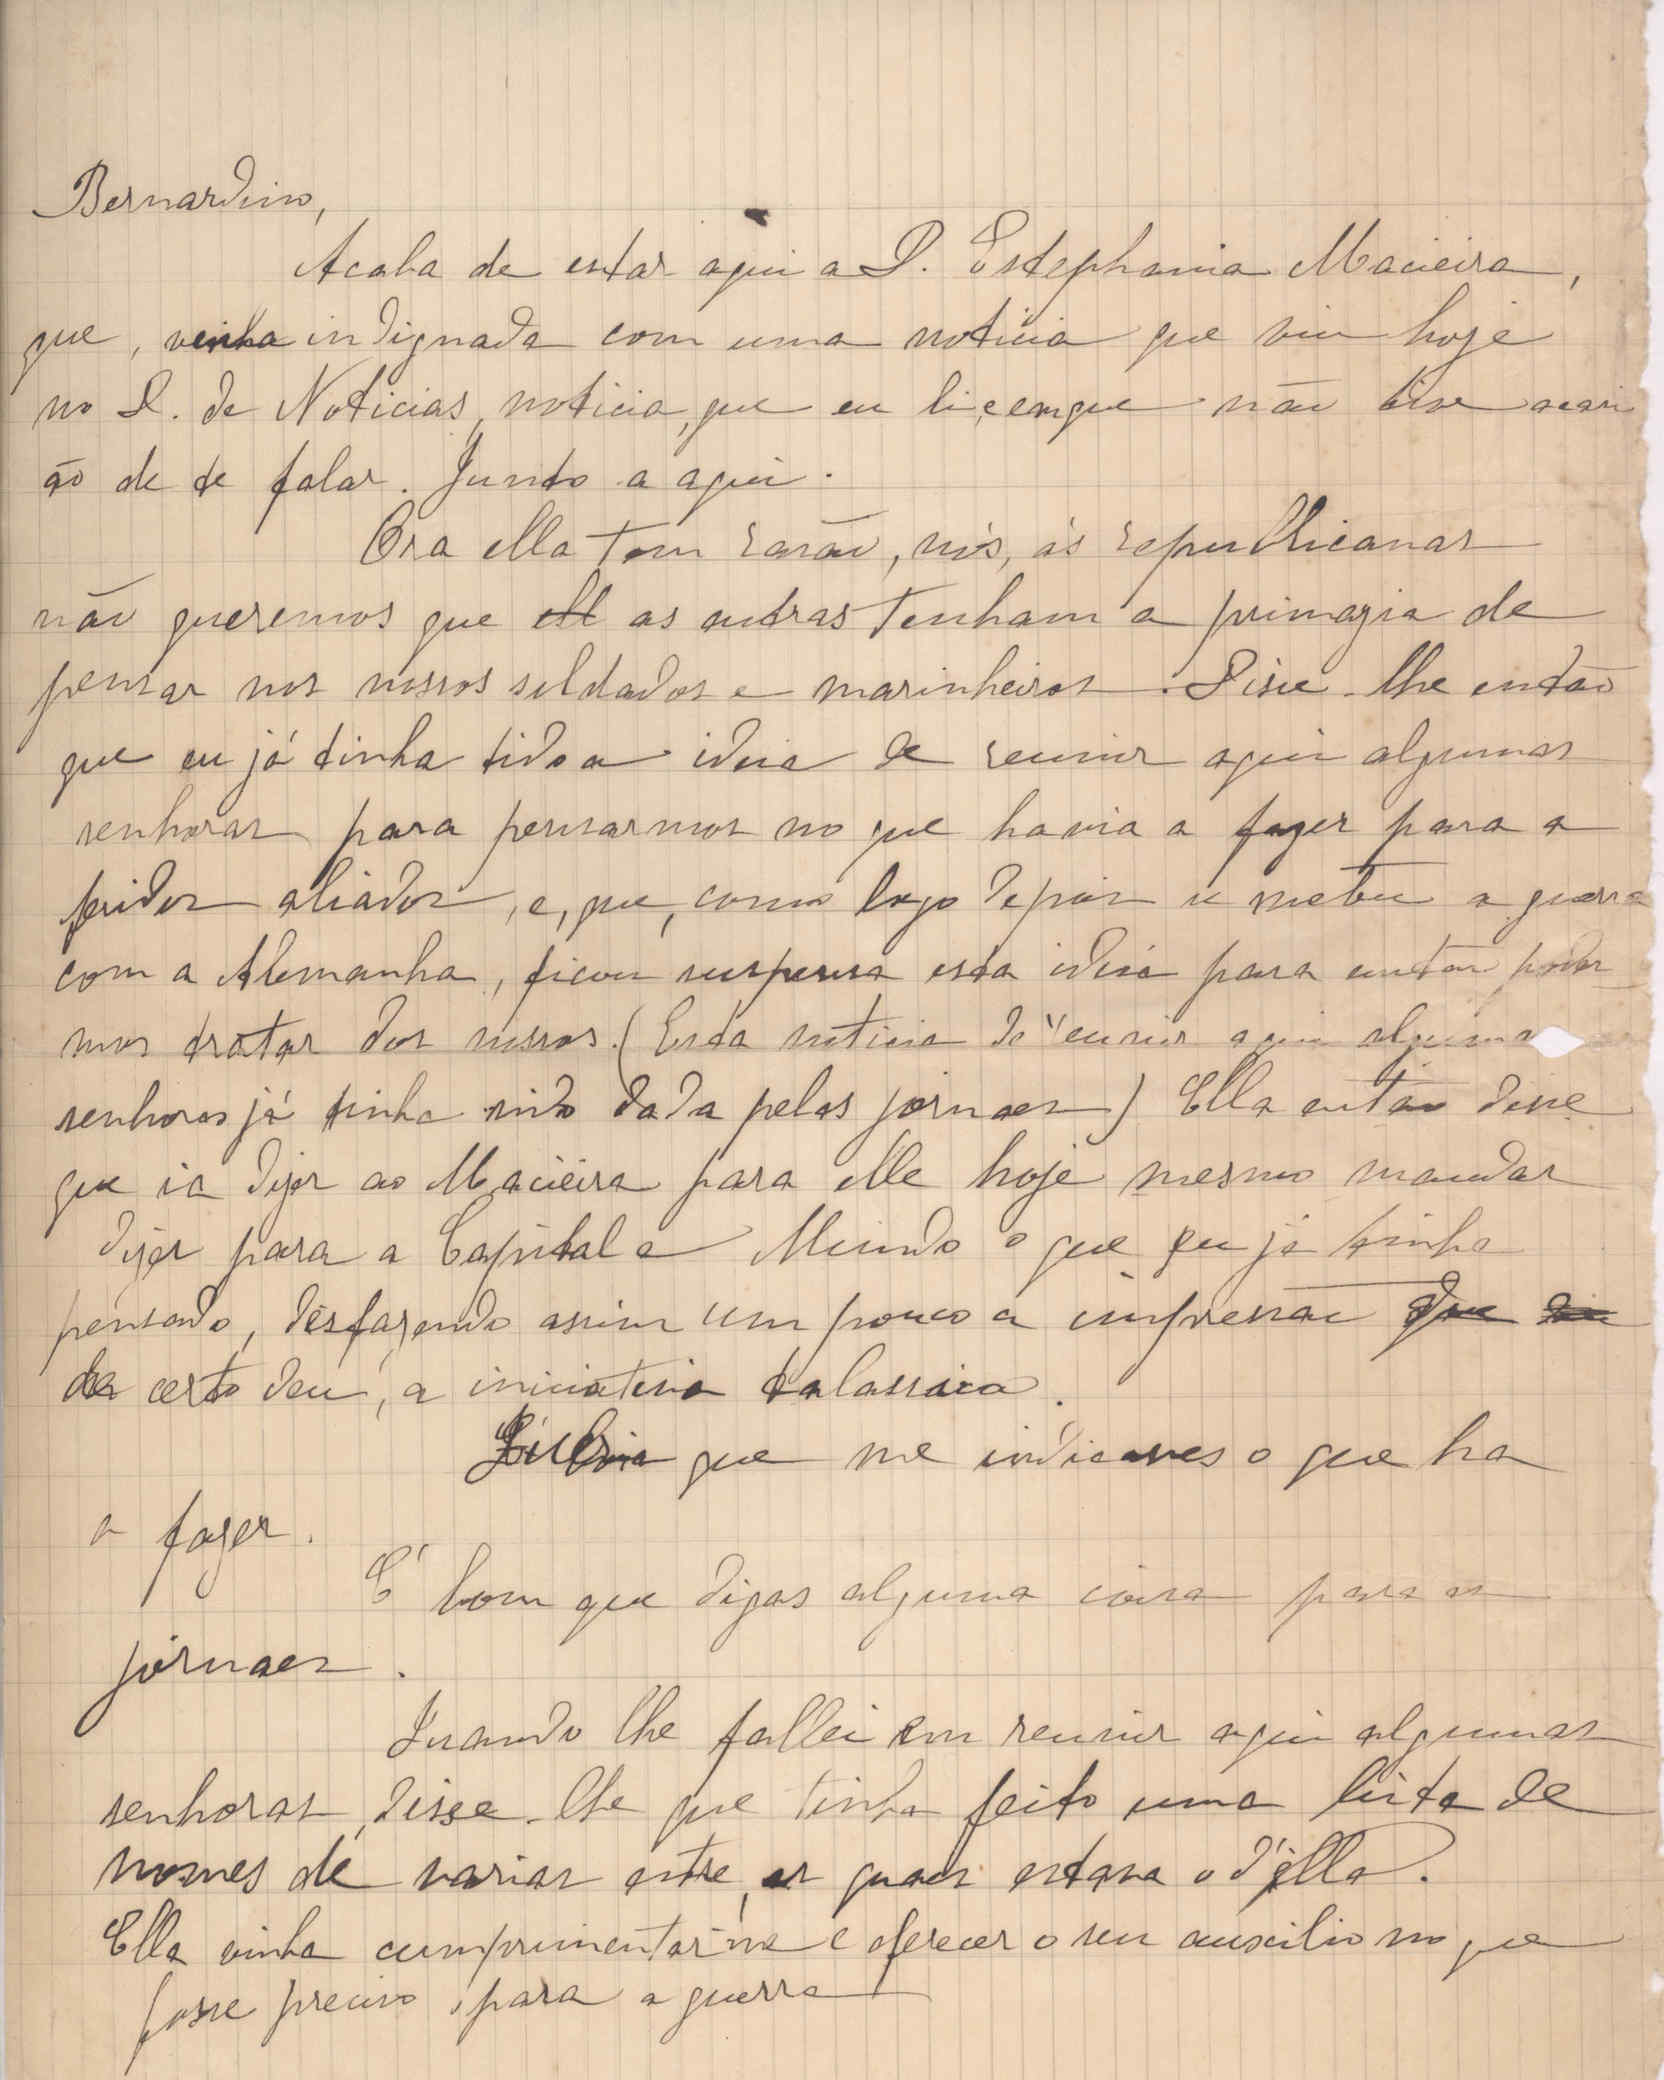 Bernardino,
Acaba de estar aqui a D. Estephania Macieira,
que, vinha indignada com uma noticia que viu hoje
no D. de Noticias, noticia, que eu li, e em que não tive occasi
ão de te falar. Junto a aqui.
Ora ella tem razão, nós, as republicanas
não queremos que ell as outras tenham a primazia de
pensar nos nossos soldados e marinheiros. Disse-lhe então
que eu já tinha tido a ideia de reunir aqui algumas
senhoras para pensarmos no que havia a fazer para a
feridos aliados, e, que, como logo depois se meteu a guerra
com a Alemanha, ficou suspensa esta ideia para então poder
mos tratar dos nossos. (Esta noticia de reunir aqui algumas
senhoras já tinha sido dada pelos jornaes) Ella então disse
que ia dizer ao Macieira para elle hoje mesmo mandar
dizer para a Capital e Mundo o que eu já tinha
pensado, desfazendo assim um pouco a impressão que
de certo deu, a iniciativa talassica.
Queria que me indicasses o que ha
a fazer.
E' bom que digas alguma coisa para os
jornaes.
Quando lhe fallei em reunir aqui algumas
senhoras, disse-lhe que tinha feito uma lista de
nomes de varias entre, as quaes estava o d'ella.
Ella vinha cumprimentar-me e oferecer o seu auxilio no que
fosse preciso, para a guerra